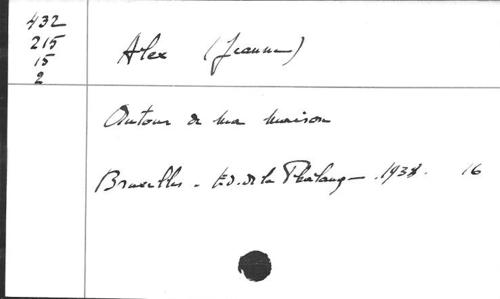 432
215
15
2
Alex (Jeanne)
Autour de ma maison
Bruxelles - Ed. de la Phalange - 1938. 16